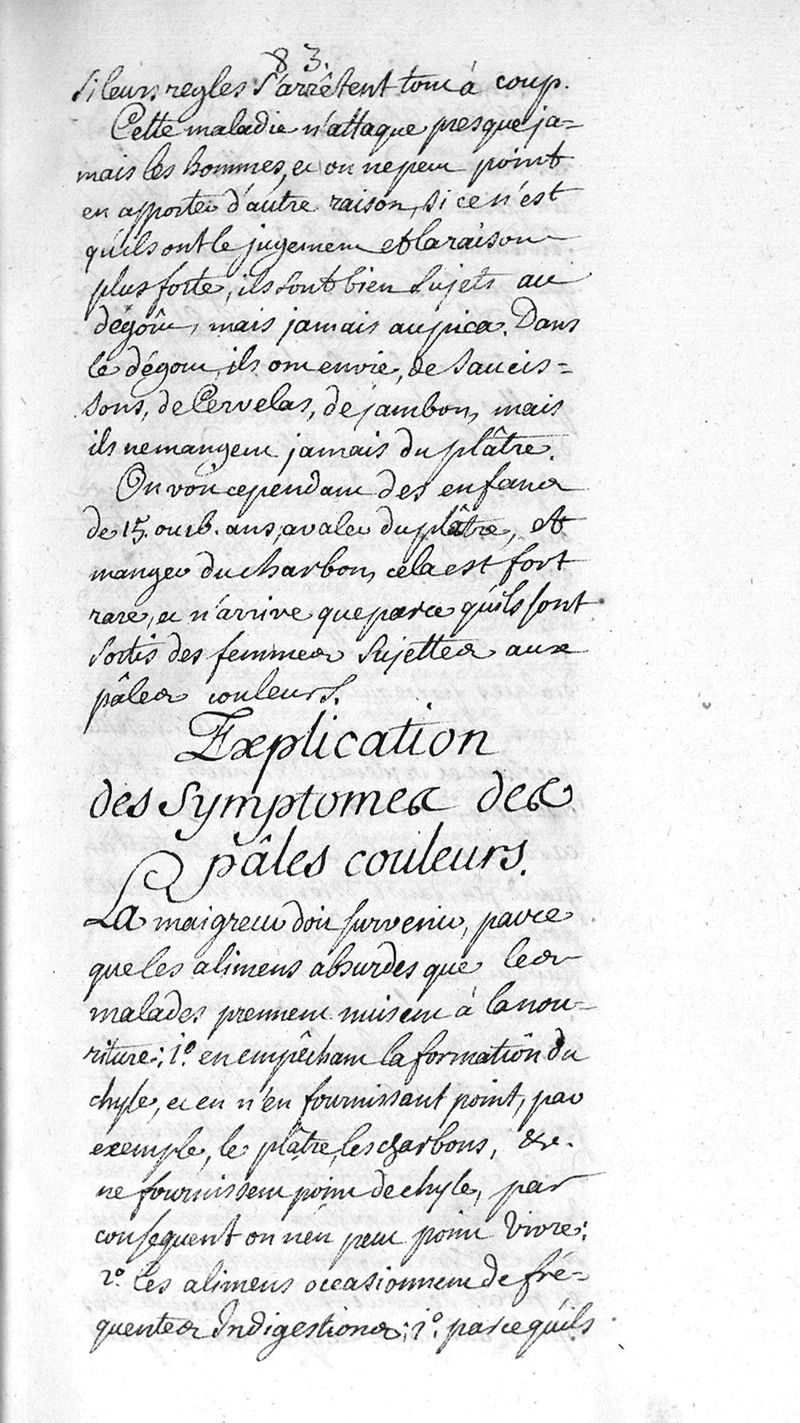 83.
si leurs regles s'arrêtent tout à coup.
Cette maladie n'attaque presque ja=
mais les hommes, et on ne peut point
en apporter d'autre raison, si ce n'est
qu'ils ont le jugement et la raison
plus forte, ils sont bien sujets au
dégoût, mais jamais au pica. Dans
le dégout, ils ont envie, de saucis=
sons, de Cervelas, de jambon, mais
ils ne mangent jamais du plâtre.
On voit cependant des enfans
de 15. ou 16. ans, avaler du plâtre, et
manger du charbon, cela est fort
rare, et n'arrive que parce qu'ils sont
sortis des femmes sujettes aux
pâles couleurs.
Explication
des Symptomes des
pâles couleurs.
La maigreur doit survenir, parce
que les alimens absurdes que les
malades prennent nuisent à la nou=
riture; 1º. en empêchant la formation du
chyle, et en n'en fournissant point, par
exemple, le plâtre, les charbons, &c.
ne fournissent point de chyle, par
consequent on n'en peut point vivre;
2º. Ces alimens occasionnent de fré=
quentes Indigestions; 1º. parce qu'ils